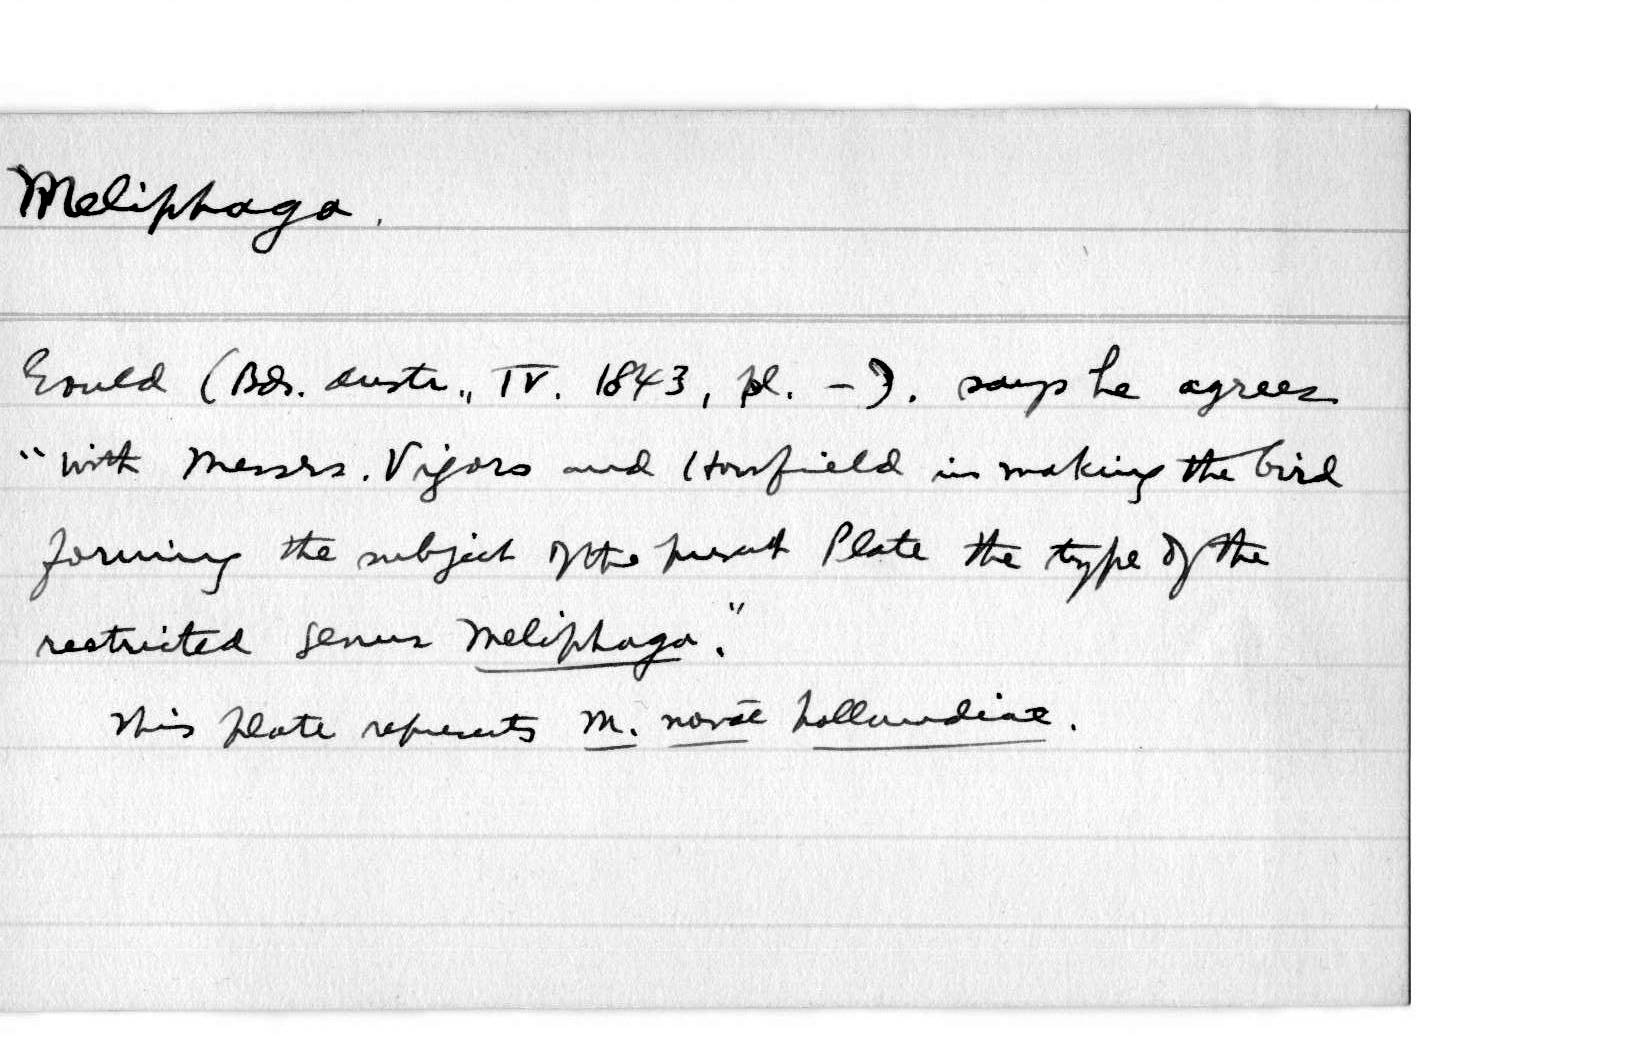 Meliphaga.
Gould (Bds. Austr., IV. 1843, pl. –). says he agrees
"with Messrs. Vigors and Horsfield in making the bird
forming the subject of the present Plate the type of the
restricted genus Meliphaga."
This plate represents M. novae hollandiae.